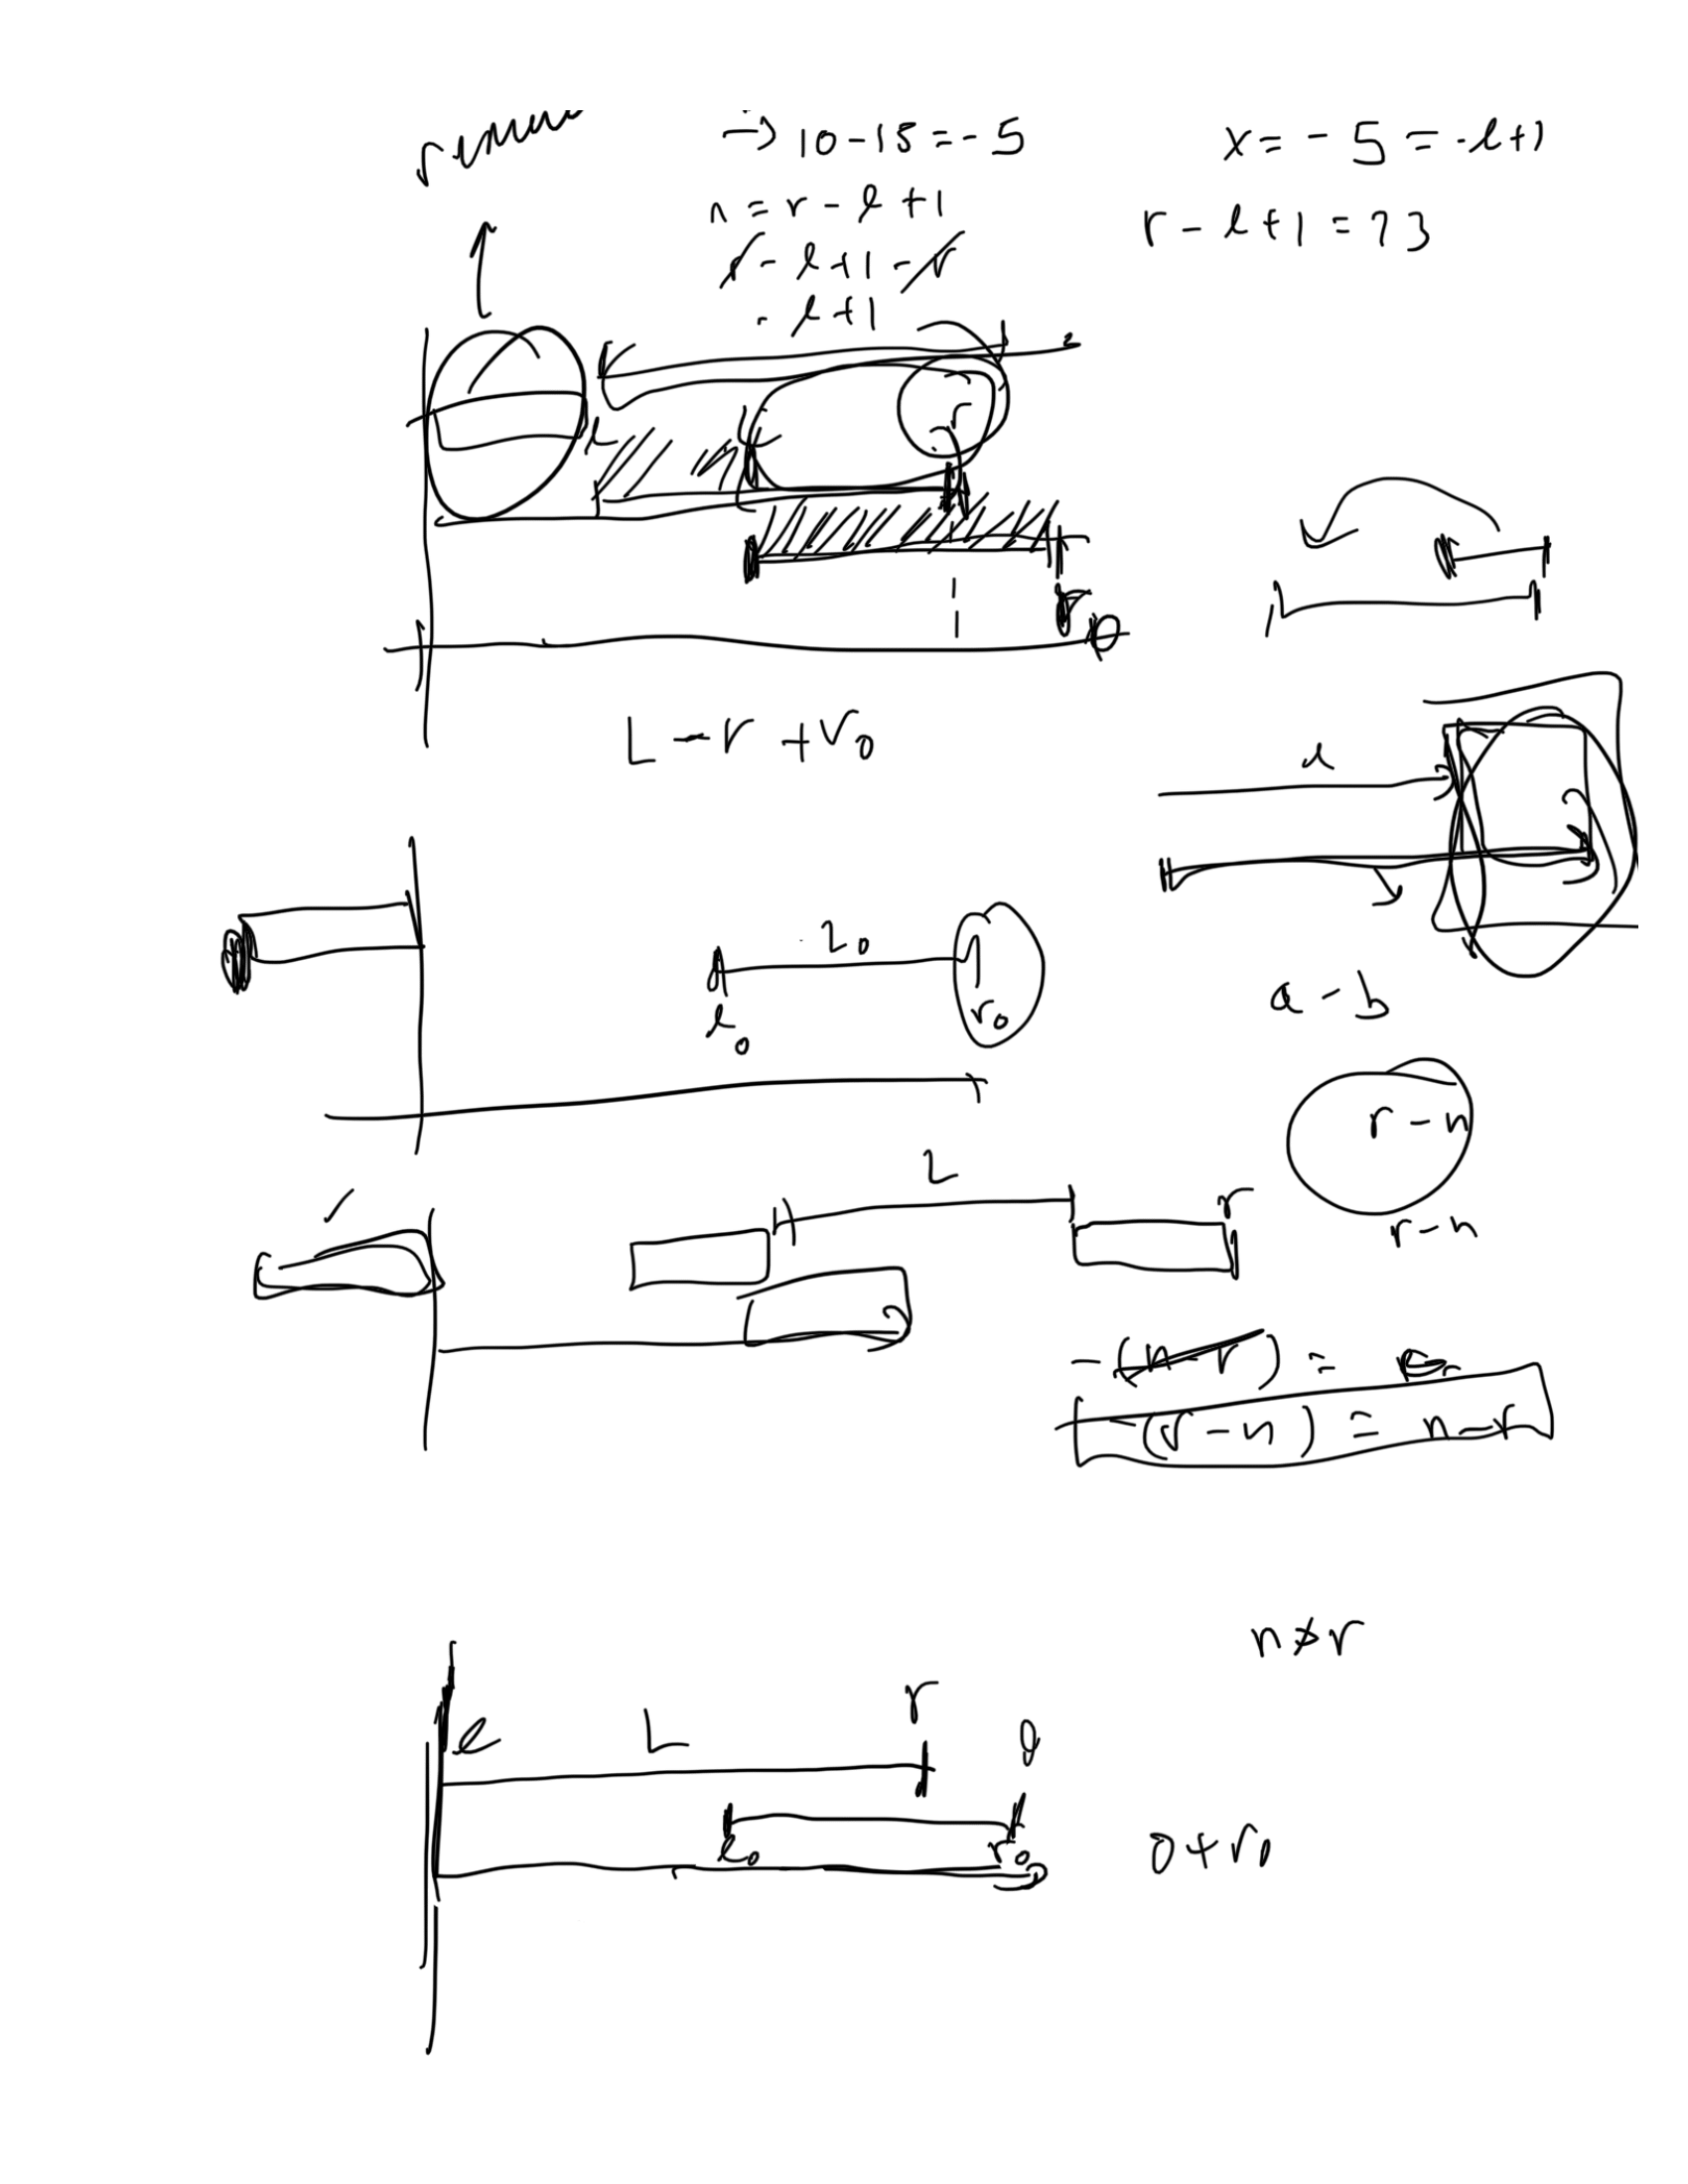 ⇒ 10-15=-5
x = -5 = -l+1
n = r - l + 1
r - l + 1 = 23
r - l + 1 - r
- l + 1
r
L - r + r₀
L₀
l₀
r₀
a - b
r - n
L
r
r - n
-(n - r) =
-(r - n) = n - r
n ≯ r
r
l
L
l₀
r₀
0 + r₀